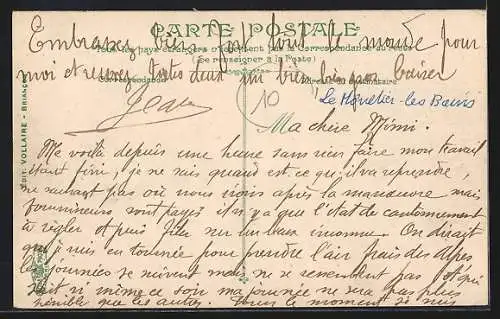 CARTE POSTALE
Embrassez bien fort tout le monde pour
Tous les pays étrangers n'acceptent pas la Correspondance au recto
(Se renseigner à la Poste)
moi et recevez toutes deux un bien gros baiser
Correspondance
Jean
10
Le Monetier-les Bains
EDIT. VOLLAIRE - BRIANÇON
Ma chère Mimi.
Me voilà depuis une heure sans rien faire mon travail
étant fini, je ne sais quand est-ce qu'il va reprendre,
ne sachant pas où nous irons après la manœuvre mais
fournisseurs sont payés il n'y a que l'état de cantonnement
à régler et puis filer sur un lieu inconnu. On dirait
que je suis en tournée pour prendre l'air frais des Alpes
les journées se suivent mais ne se ressemblent pas
si même ce soir ma journée ne sera pas plus
pénible que les autres. Pour le moment je suis